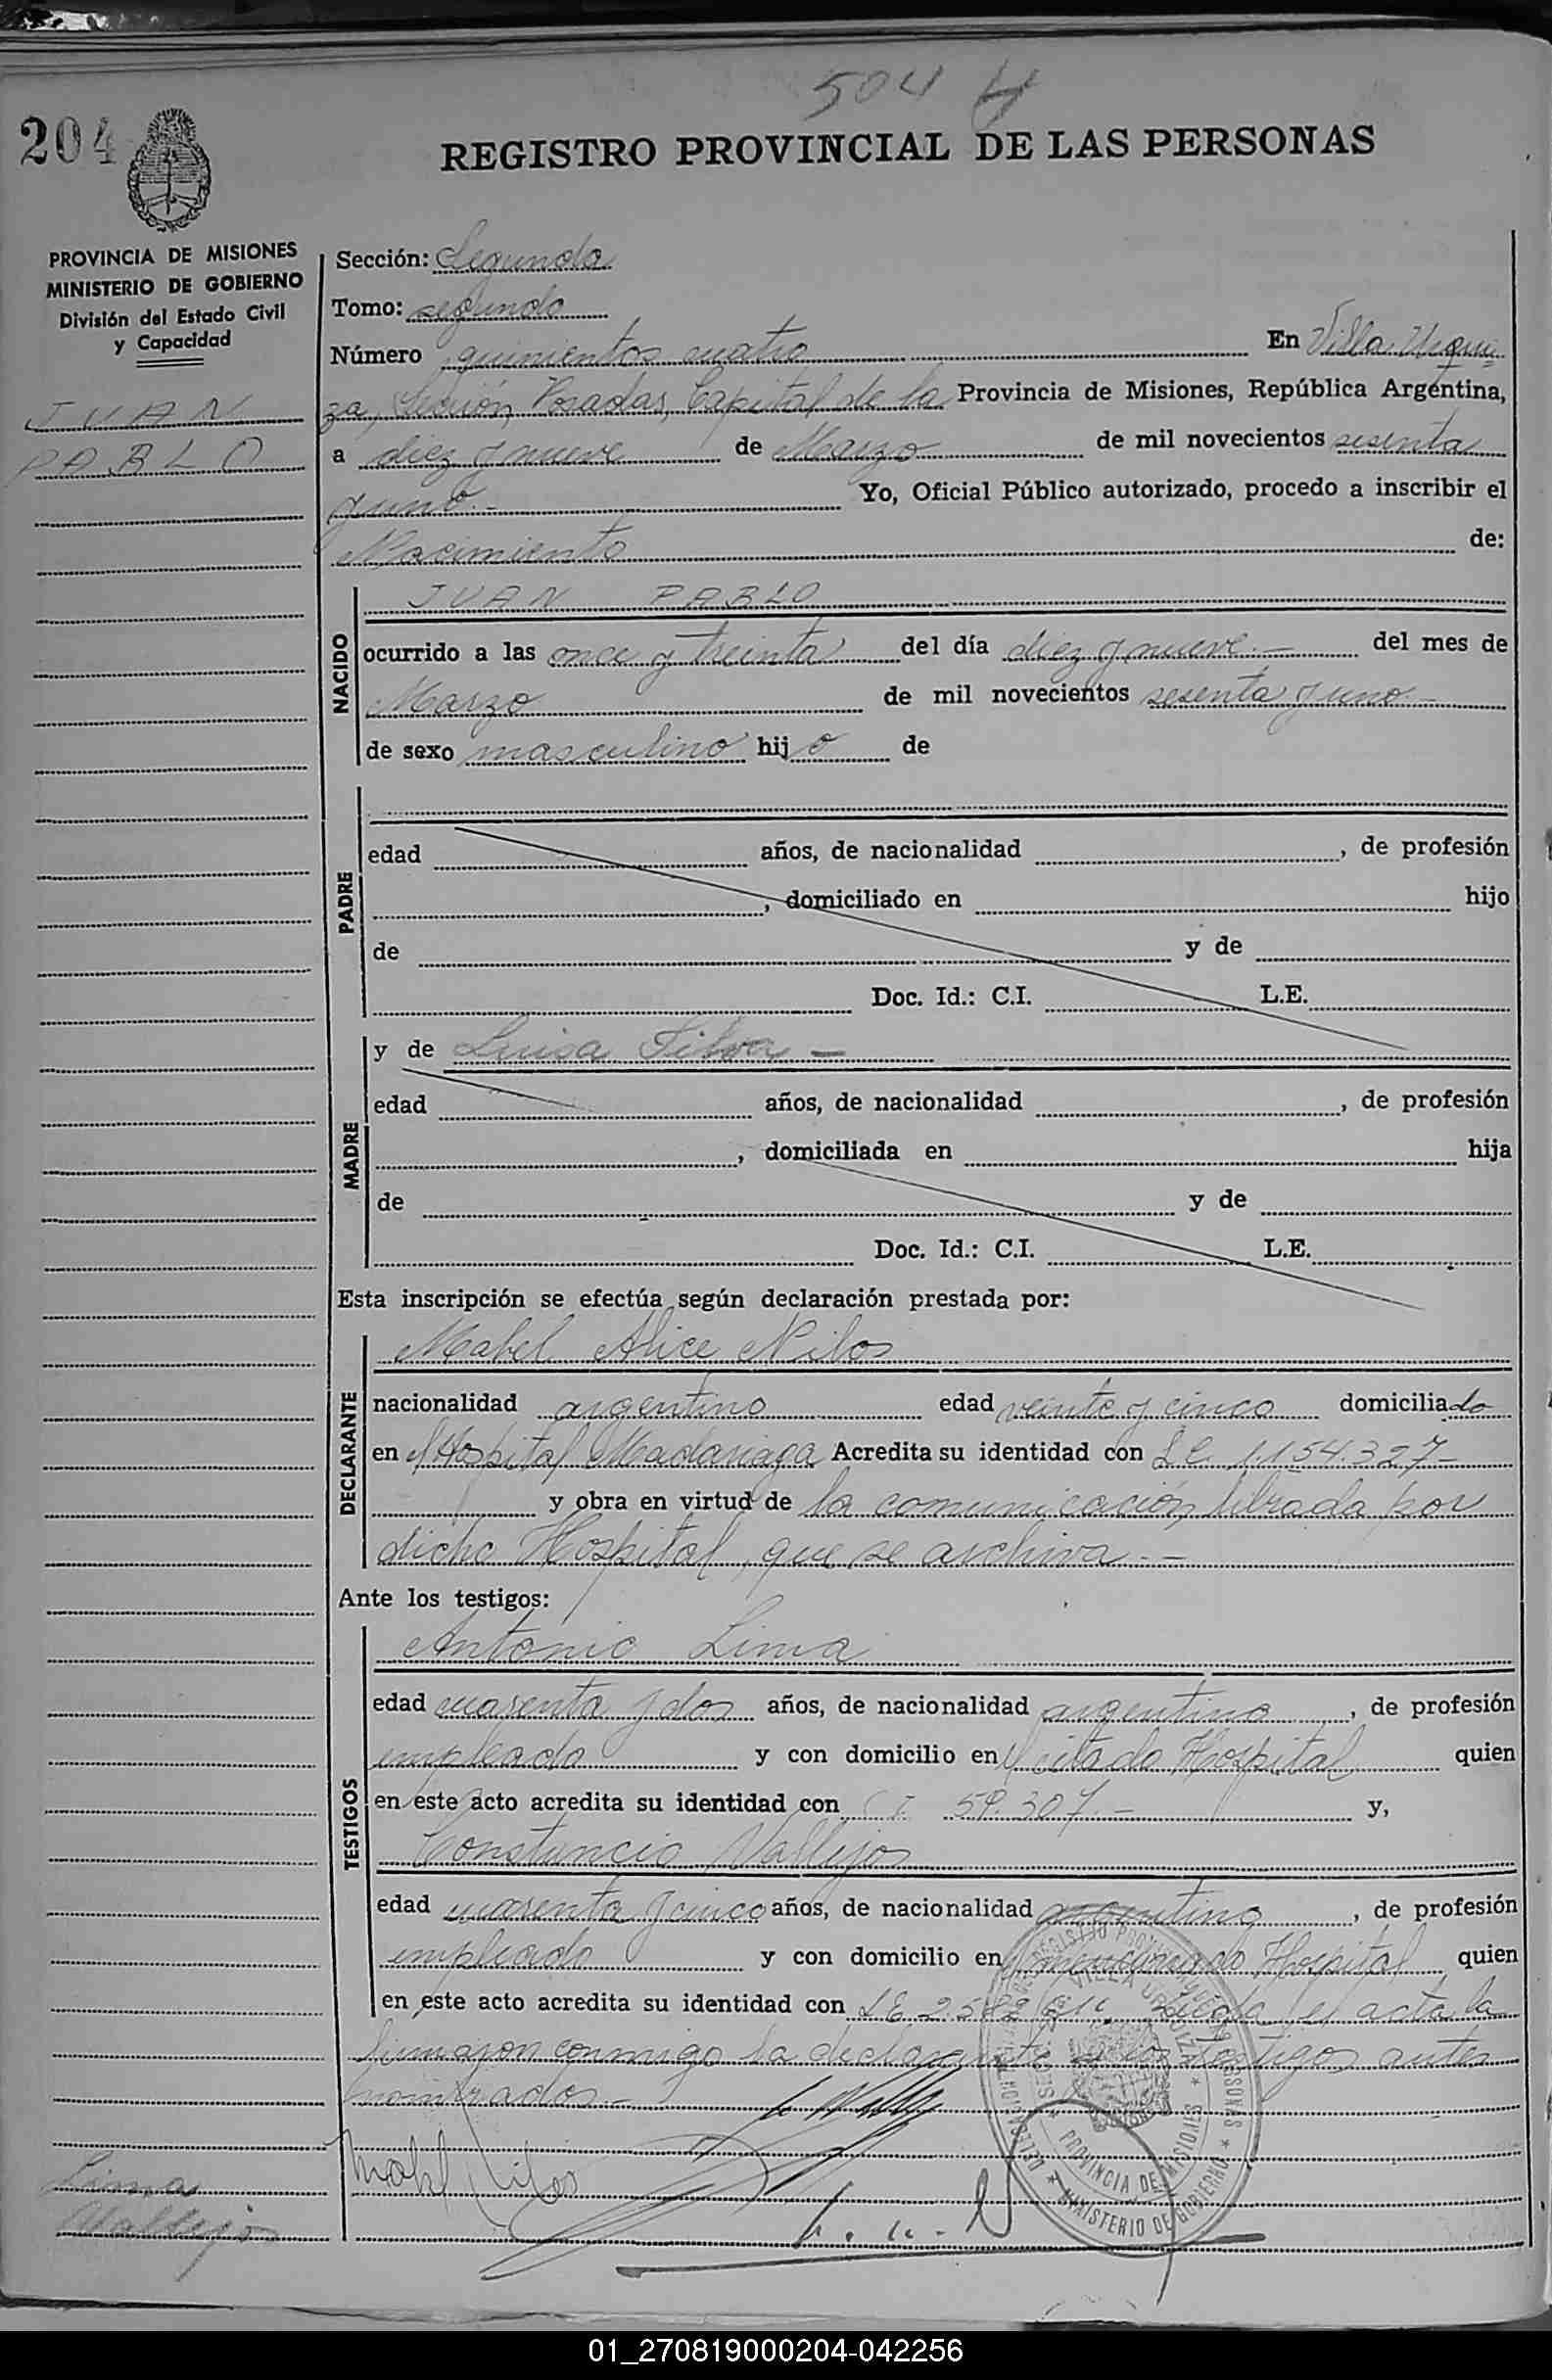 504
204
REGISTRO PROVINCIAL DE LAS PERSONAS
PROVINCIA DE MISIONES
MINISTERIO DE GOBIERNO
División del Estado Civil
y Capacidad
JUAN
PABLO
Sección: Segunda
Tomo: segundo
Número quinientos cuatro En Villa Urqui=
za, Sección, Posadas, Capital de la Provincia de Misiones, República Argentina,
a diez y nueve de Marzo de mil novecientos sesenta
y uno.- Yo, Oficial Público autorizado, procedo a inscribir el
Nacimiento de:
NACIDO
JUAN PABLO
ocurrido a las once y treinta del día diez y nueve.- del mes de
Marzo de mil novecientos sesenta y uno.-
de sexo masculino hijo de
PADRE
edad años, de nacionalidad , de profesión
, domiciliado en hijo
de y de
Doc. Id.: C.I. L.E.
MADRE
y de Luisa Silva -
edad años, de nacionalidad , de profesión
, domiciliada en hija
de y de
Doc. Id.: C.I. L.E.
Esta inscripción se efectúa según declaración prestada por:
DECLARANTE
Mabel Alice Nilos
nacionalidad argentino edad veinte y cinco domiciliado
en el Hospital Madariaga Acredita su identidad con L.C. 1.154.327-
y obra en virtud de la comunicación librada por
dicho Hospital, que se archiva.-
Ante los testigos:
TESTIGOS
Antonio Lima
edad cuarenta y dos años, de nacionalidad argentino, de profesión
empleado y con domicilio en el citado Hospital quien
en este acto acredita su identidad con C.I. 59.307.- y,
Constancio Vallejos
edad cuarenta y cinco años, de nacionalidad argentino, de profesión
empleado y con domicilio en el mencionado Hospital quien
en este acto acredita su identidad con L.E. 2.582 leída el acta la
firmaron conmigo la declarante y los testigos antes
nombrados.-
Mabel Nilos
Lima
Vallejos
REGISTRO PROVINCIAL DE LAS PERSONAS * MINISTERIO DE GOBIERNO *
VILLA URQUIZA * PROVINCIA DE MISIONES *
01_270819000204-042256